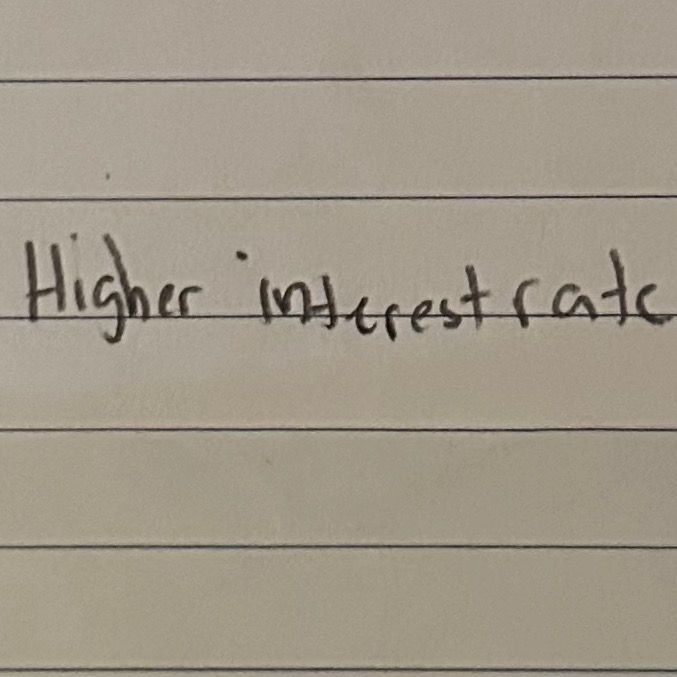 Higher interest rate